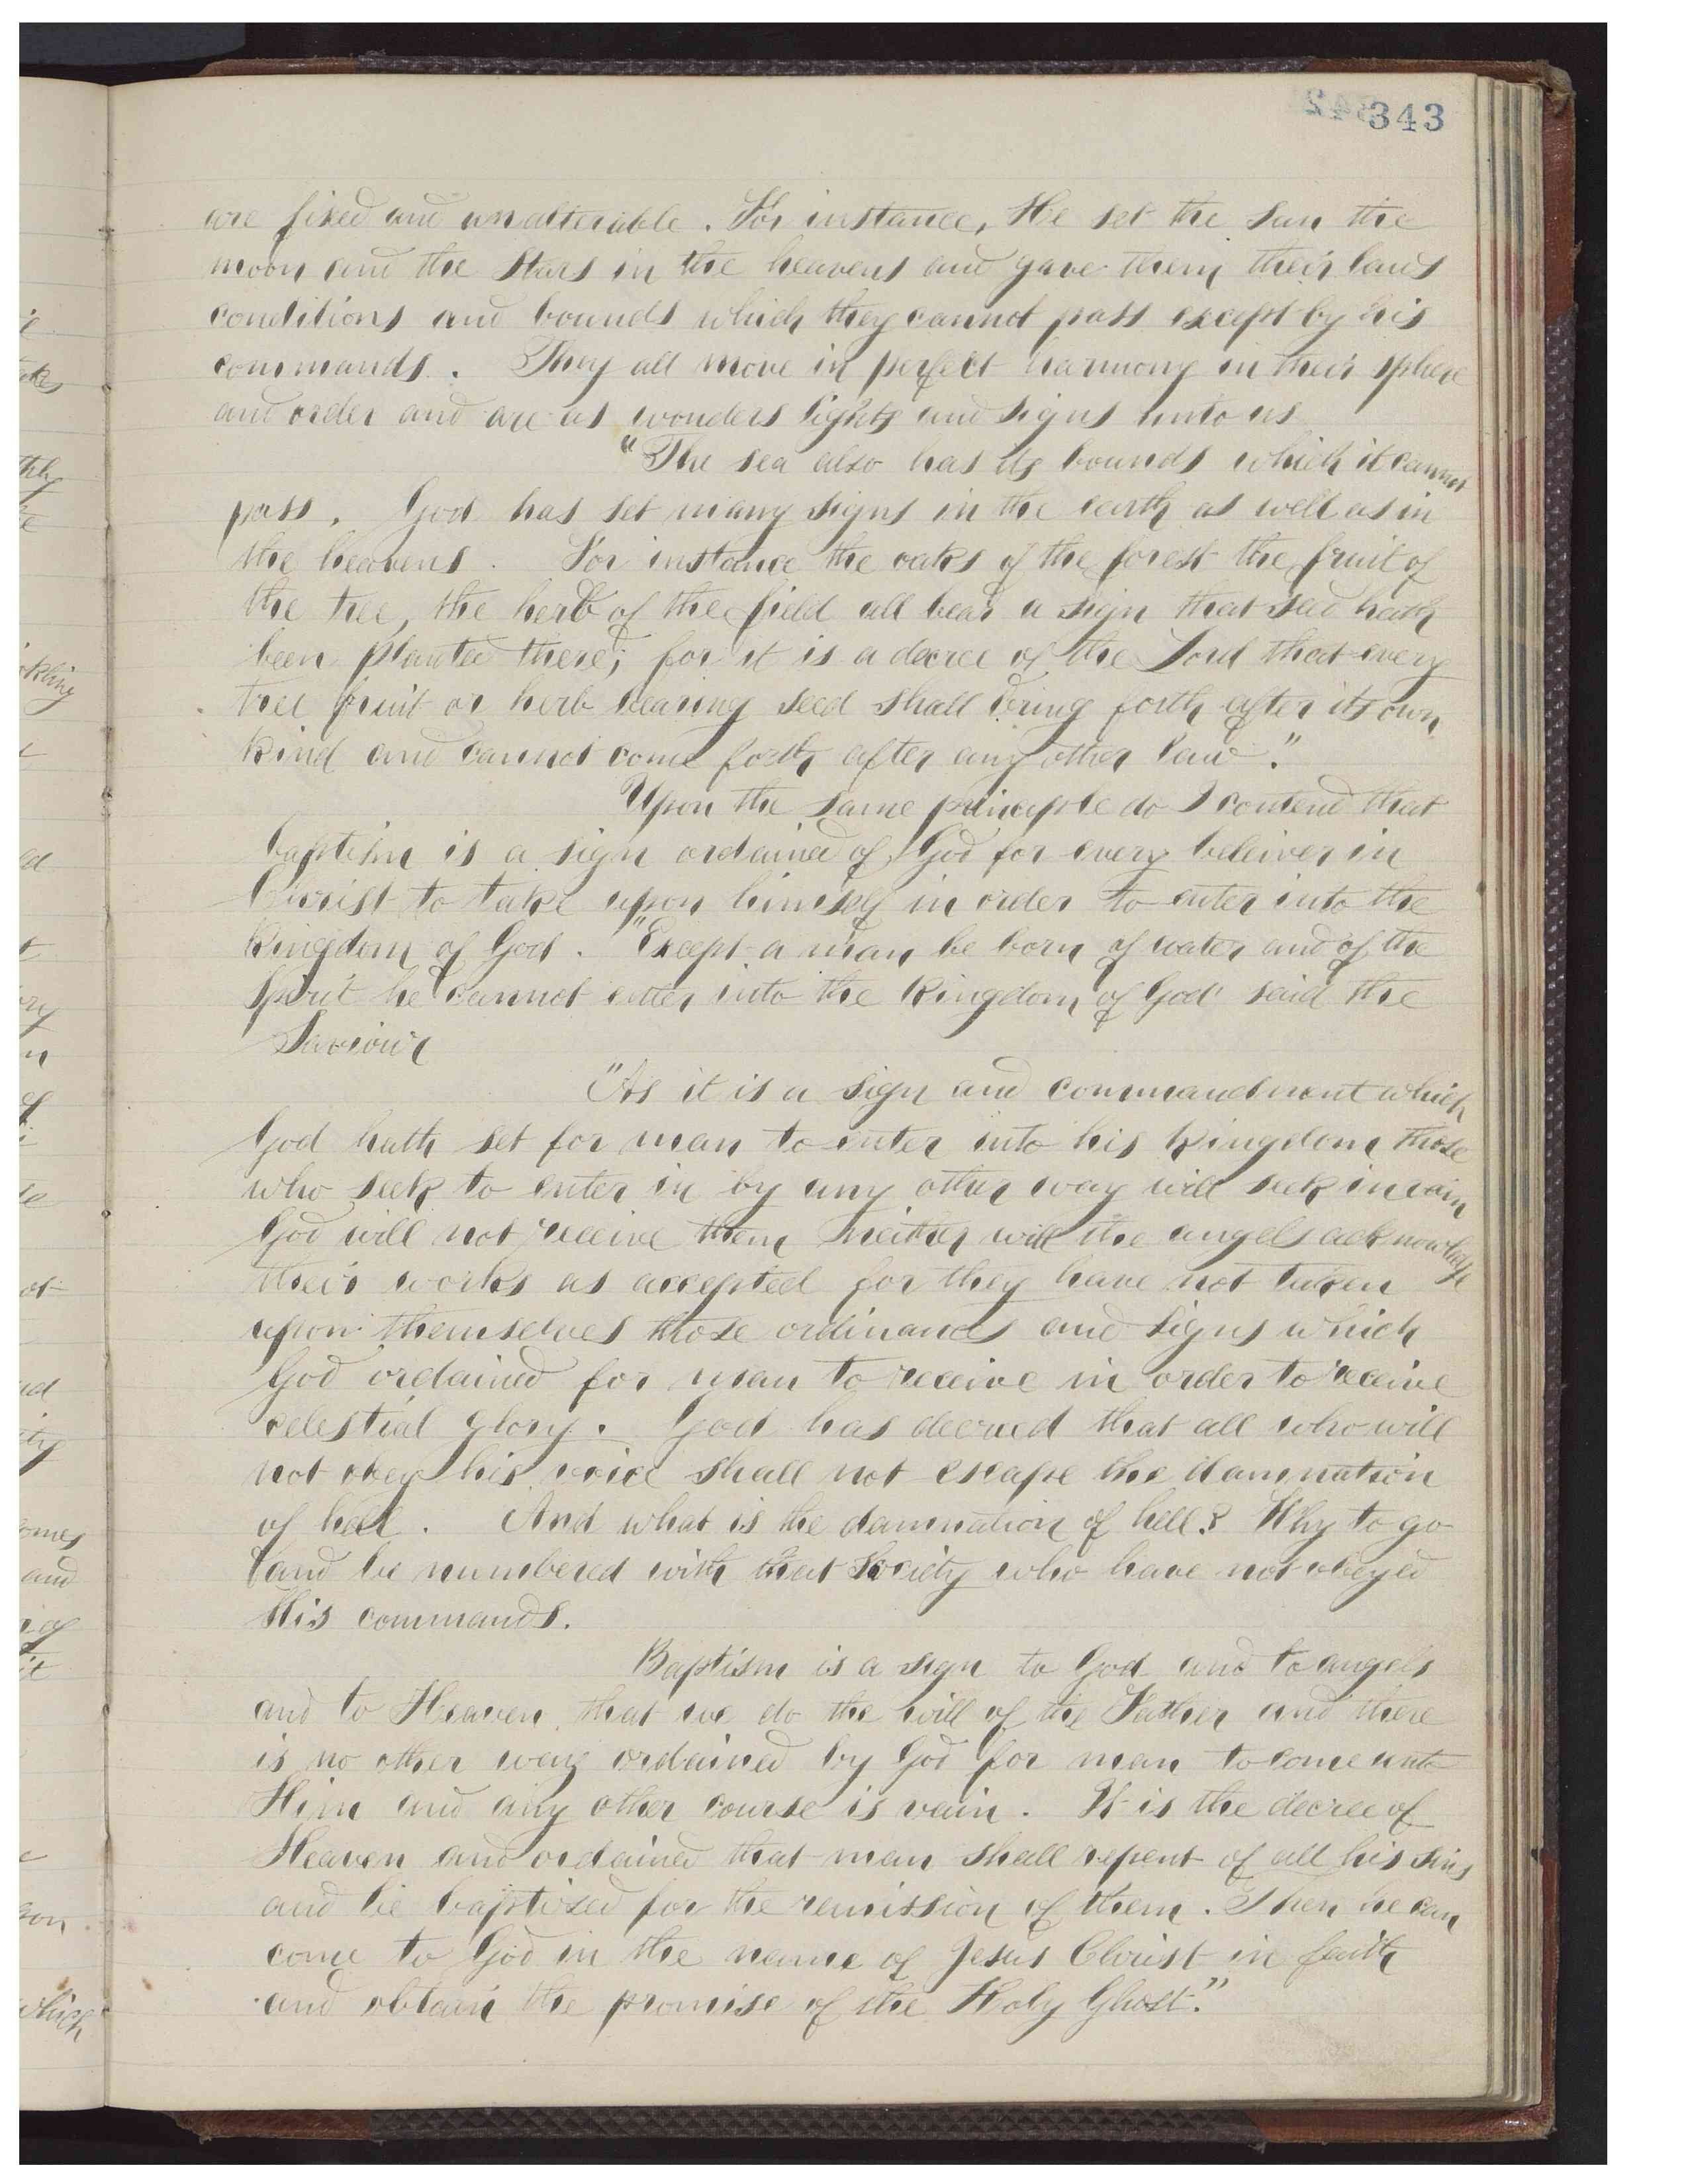 343
are fixed and unalterable. For instance, He set the Sun the
moon and the Stars in the heavens and gave them their laws
conditions and bounds which they cannot pass except by his
commands. They all move in perfect harmony in their sphere
and order and are as wonders lights and signs unto us
"The sea also has its bounds which it cannot
pass. God has set many signs in the earth as well as in
the heavens. For instance the oaks of the forest the fruit of
the tree, the herb of the field all bear a sign that seed hath
been planted there; for it is a decree of the Lord that every
tree fruit or herb bearing seed shall bring forth after its own
kind and cannot come forth after any other law."
Upon the same principle do I contend that
baptism is a sign ordained of God for every beleiver in
Christ to take upon himself in order to enter into the
Kingdom of God. "Except a man be born of water and of the
Spirit he cannot enter into the Kingdom of God' said the
Saviour
"As it is a sign and commandment which
God hath set for man to enter into his Kingdom those
who seek to enter in by any other way will seek in vain
God will not receive them neither will the angels acknowledge
their works as accepted for they have not taken
upon themselves those ordinances and signs which
God ordained for man to receive in order to receive
celestial glory. God has decreed that all who will
not obey his voice shall not escape the damnation
of hell. And what is the damnation of hell? Why to go
and be numbered with that Society who have not obeyed
His commands.
Baptism is a sign to God and to angels
and to Heaven, that we do the will of the Father and there
is no other way ordained by God for man to come unto
Him and any other course is vain. It is the decree of
Heaven and ordained that man shall repent of all his sins
and be baptized for the remission of them. Then he can
come to God in the name of Jesus Christ in faith
and obtain the promise of the Holy Ghost."